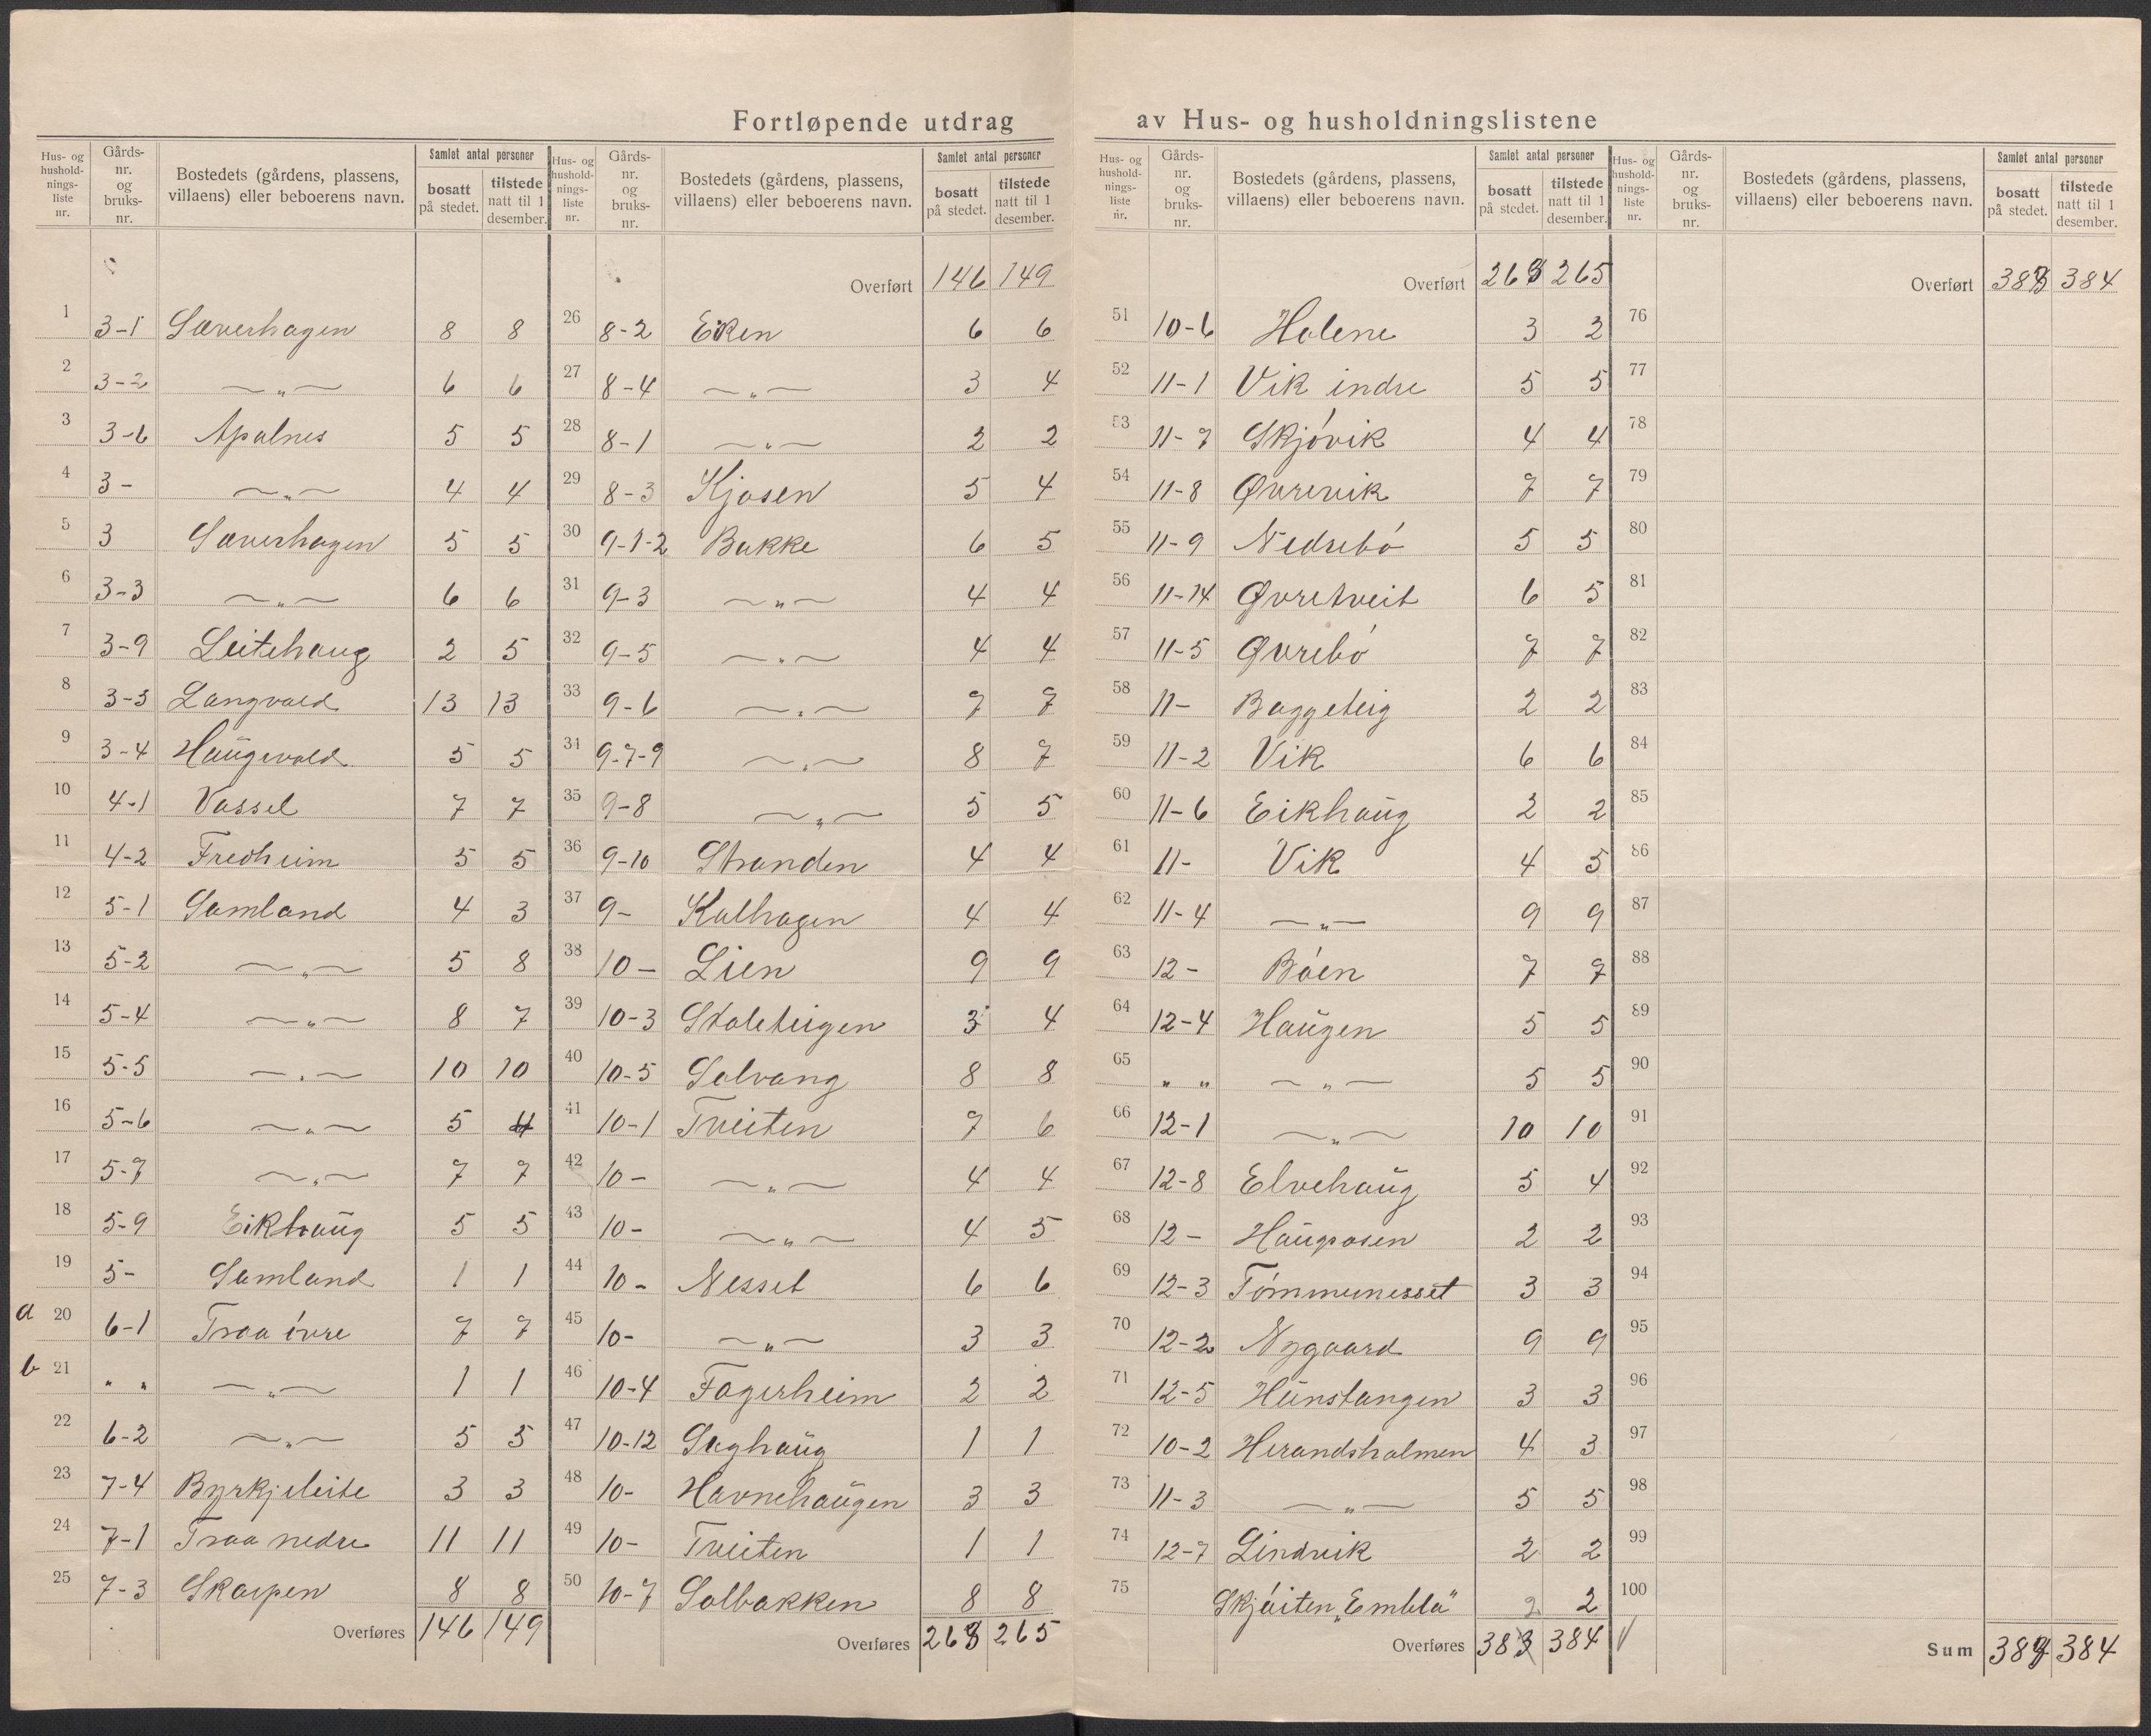 Fortløpende utdrag av Hus- og husholdningslistene
Hus- og hushold-nings-liste nr. | Gårds-nr. og bruks-nr. | Bostedets (gårdens, plassens, villaens) eller beboerens navn. | Samlet antal personer | bosatt på stedet. | tilstede natt til 1 desember.
1 3-1 Sæverhagen 8 8
2 3-2 —„— 6 6
3 3-6 Apalnes 5 5
4 3- —„— 4 4
5 3 Sæverhagen 5 5
6 3-3 —„— 6 6
7 3-9 Leitehaug 2 5
8 3-5 Langvold 13 13
9 3-4 Haugevold 5 5
10 4-1 Vassel 7 7
11 4-2 Fredheim 5 5
12 5-1 Samland 4 3
13 5-2 —„— 5 8
14 5-4 —„— 8 7
15 5-5 —„— 10 10
16 5-6 —„— 5 4
17 5-7 —„— 7 7
18 5-9 Eikhaug 5 5
19 5- Samland 1 1
a 20 6-1 Traa övre 7 7
b 21 „ „ —„— 1 1
22 6-2 —„— 5 5
23 7-4 Byrkjeleite 3 3
24 7-1 Traa nedre 11 11
25 7-3 Skarpen 8 8
Overføres 146 149
Hus- og hushold-nings-liste nr. | Gårds-nr. og bruks-nr. | Bostedets (gårdens, plassens, villaens) eller beboerens navn. | Samlet antal personer | bosatt på stedet. | tilstede natt til 1 desember.
Overført 146 149
26 8-2 Eiken 6 6
27 8-4 —„— 3 4
28 8-1 —„— 2 2
29 8-3 Kjosen 5 4
30 9-1-2 Bakke 6 5
31 9-3 —„— 4 4
32 9-5 —„— 4 4
33 9-6 —„— 7 7
34 9-7-9 —„— 8 7
35 9-8 —„— 5 5
36 9-10 Stranden 4 4
37 9- Kalhagen 4 4
38 10- Lien 9 9
39 10-3 Staleteigen 3 4
40 10-5 Solvang 8 8
41 10-1 Tveiten 7 6
42 10- —„— 4 4
43 10- —„— 4 5
44 10- Nesset 6 6
45 10- —„— 3 3
46 10-4 Fagerheim 2 2
47 10-12 Saghaug 1 1
48 10- Havnehaugen 3 3
49 10- Tveiten 1 1
50 10-7 Solbakken 8 8
Overføres 268 265
Hus- og hushold-nings-liste nr. | Gårds-nr. og bruks-nr. | Bostedets (gårdens, plassens, villaens) eller beboerens navn. | Samlet antal personer | bosatt på stedet. | tilstede natt til 1 desember.
Overført 268 265
51 10-6 Holene 3 2
52 11-1 Vik indre 5 5
53 11-7 Skjövik 4 4
54 11-8 Øvrevik 7 7
55 11-9 Nedrebö 5 5
56 11-14 Øvretveit 6 5
57 11-5 Øvrebö 7 7
58 11- Baggeteig 2 2
59 11-2 Vik 6 6
60 11-6 Eikhaug 2 2
61 11- Vik 4 5
62 11-4 —„— 9 9
63 12- Böen 7 7
64 12-4 Haugen 5 5
65 „ „ —„— 5 5
66 12-1 —„— 10 10
67 12-8 Elvehaug 5 4
68 12- Haugaasen 2 2
69 12-3 Tömmernesset 3 3
70 12-2 Nygaard 9 9
71 12-5 Hunstangen 3 3
72 10-2 Herandsholmen 4 3
73 11-3 —„— 5 5
74 12-7 Lindvik 2 2
75 Skjöiten „Embla" 2 2
Overføres 383 384
Hus- og hushold-nings-liste nr. | Gårds-nr. og bruks-nr. | Bostedets (gårdens, plassens, villaens) eller beboerens navn. | Samlet antal personer | bosatt på stedet. | tilstede natt til 1 desember.
Overført 383 384
76
77
78
79
80
81
82
83
84
85
86
87
88
89
90
91
92
93
94
95
96
97
98
99
100
Sum 387 384